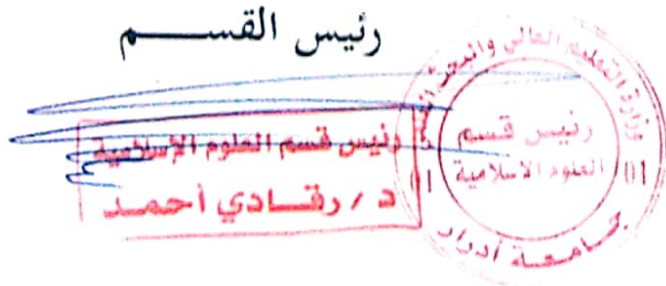 رئيس القســـــم
رئيس قسم العلوم الإسلامية
د / رقــادي أحمــد
وزارة التعليم العالي والبحث
رئيس قسم
العلوم الاسلامية
01
01
جامعة أدرار